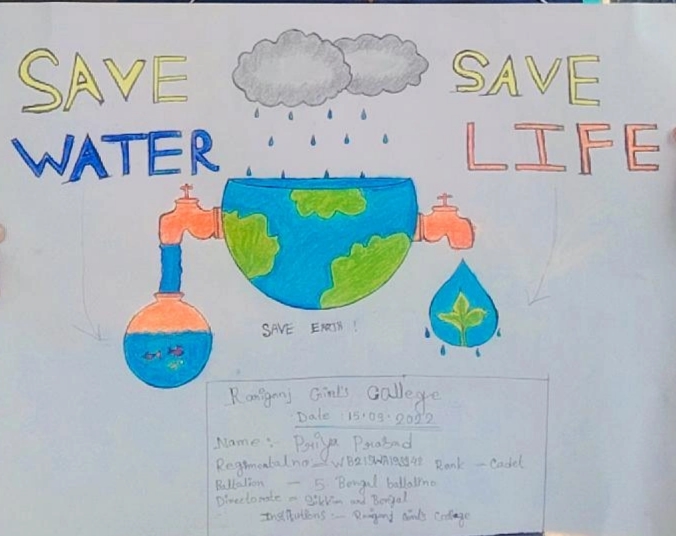 SAVE WATER
SAVE LIFE
SAVE EARTH !
Raniganj Girl's College
Date : 15.03.2022
Name :- Priya Prasad
Regimentalno - Rank - Cadet
Battalion - 5 Bengal battalino
Directorate - Sikkim and Bengal
Institutions :- Raniganj Girl's College